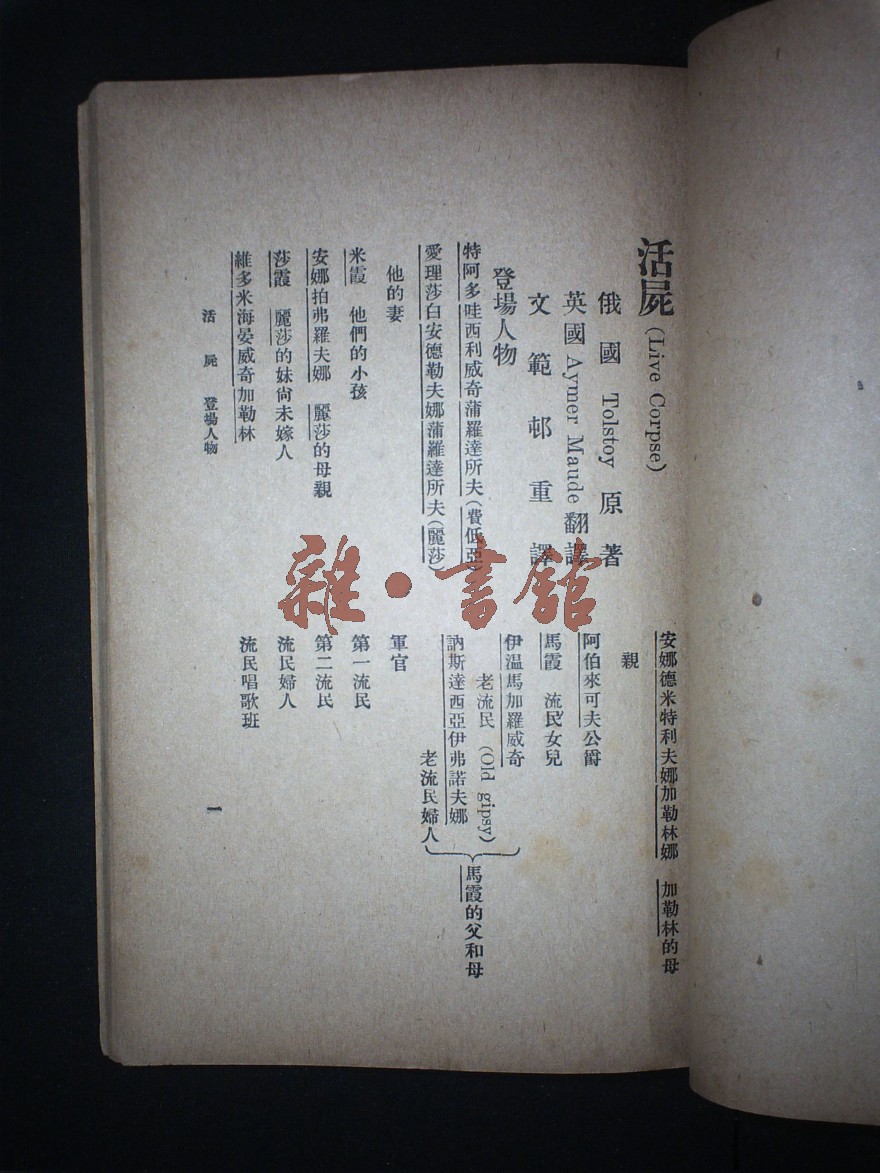 活屍(Live Corpse)
俄國 Tolstoy 原著
英國 Aymer Maude 翻譯
文範邨重譯
登場人物
特阿多哇西利威奇蒲羅達所夫(費低亞)
愛理莎白安德勒夫娜蒲羅達所夫(麗莎)
他的妻
米霞 他們的小孩
安娜拍弗羅夫娜 麗莎的母親
莎霞 麗莎的妹尙未嫁人
維多米海晏威奇加勒林
安娜德米特利夫娜加勒林娜 加勒林的母
親
阿伯來可夫公爵
馬霞 流民女兒
伊溫馬加羅威奇
老流民 (Old gipsy)
訥斯達西亞伊弗諾夫娜
老流民婦人
馬霞的父和母
軍官
第一流民
第二流民
流民婦人
流民唱歌班
活屍 登場人物
一
雜·書館